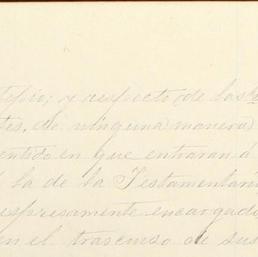 respecto de las
de ninguna manera
en que entraran á
la de la Testamentaría
espresamente encargado
en el trascurso de sus